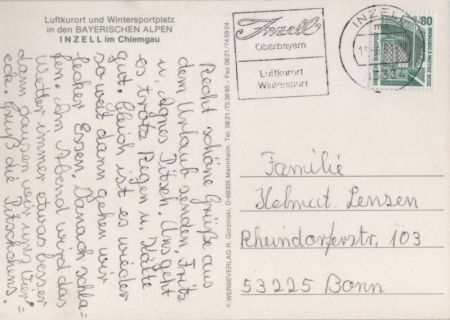 Luftkurort und Wintersportplatz
in den BAYERISCHEN ALPEN
INZELL im Chiemgau
Recht schöne Grüße aus
dem Urlaub senden Fritz
u. Agnes Pitsch. Uns geht
es trotz Regen u. Kälte
gut. Gleich ist es wieder
so weit dann gehen wir
lecker Essen. Danach schla=
fen. Am Abend wird das
Wetter immer etwas besser
dann
wir uns
ecke. Gruß die Pitschduns.
© WERBEVERLAG R. Gorzinski, D-68305 Mannheim, Tel. 0621/753695 - Fax 0621/745924
Inzell
Oberbayern
Luftkurort
Wintersport
INZELL
80
DEUTSCHE BUNDESPOST
Familie
Helmut Lensen
Rheindorferstr. 103
53225 Bonn